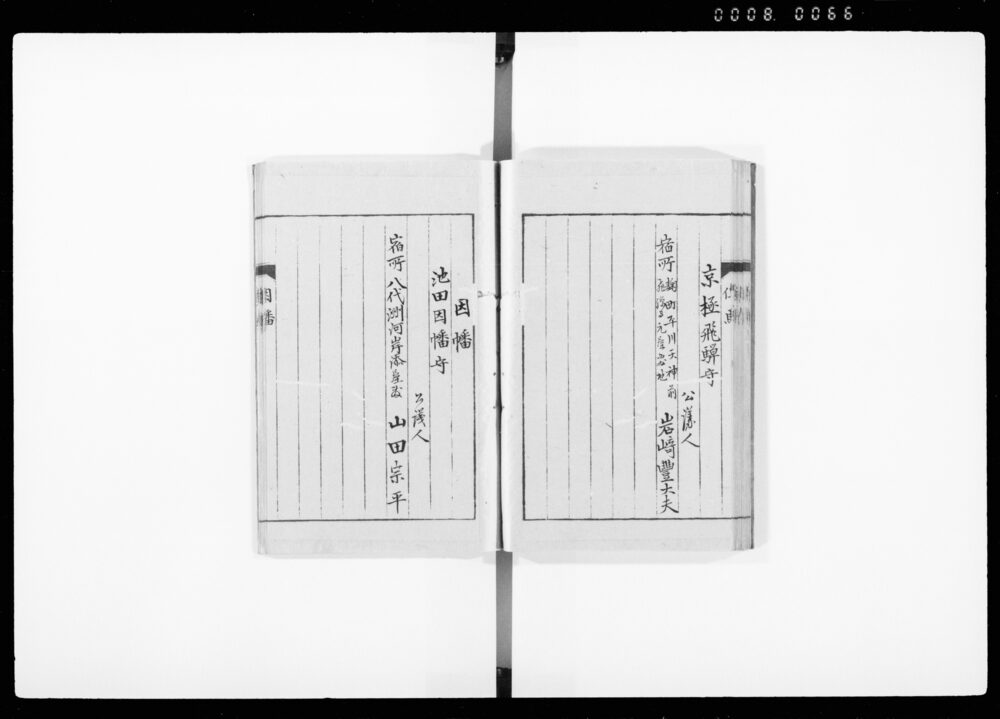 0008. 0066
京極飛騨守
公議人
宿所 麹町平川天神前
岩﨑豐太夫
因幡
池田因幡守
公議人
宿所 八代洲河岸添屋敷 山田宗平
因幡